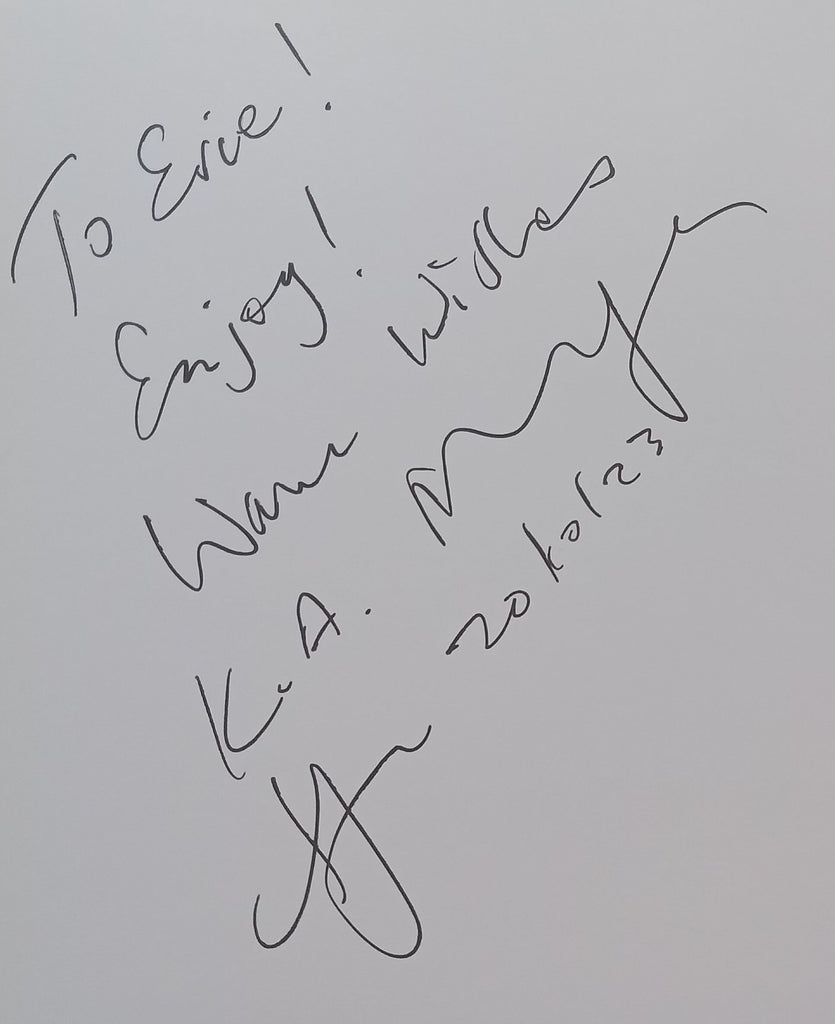 To Erie!
Enjoy!
Warm Wishes
K. A.
20/10/23